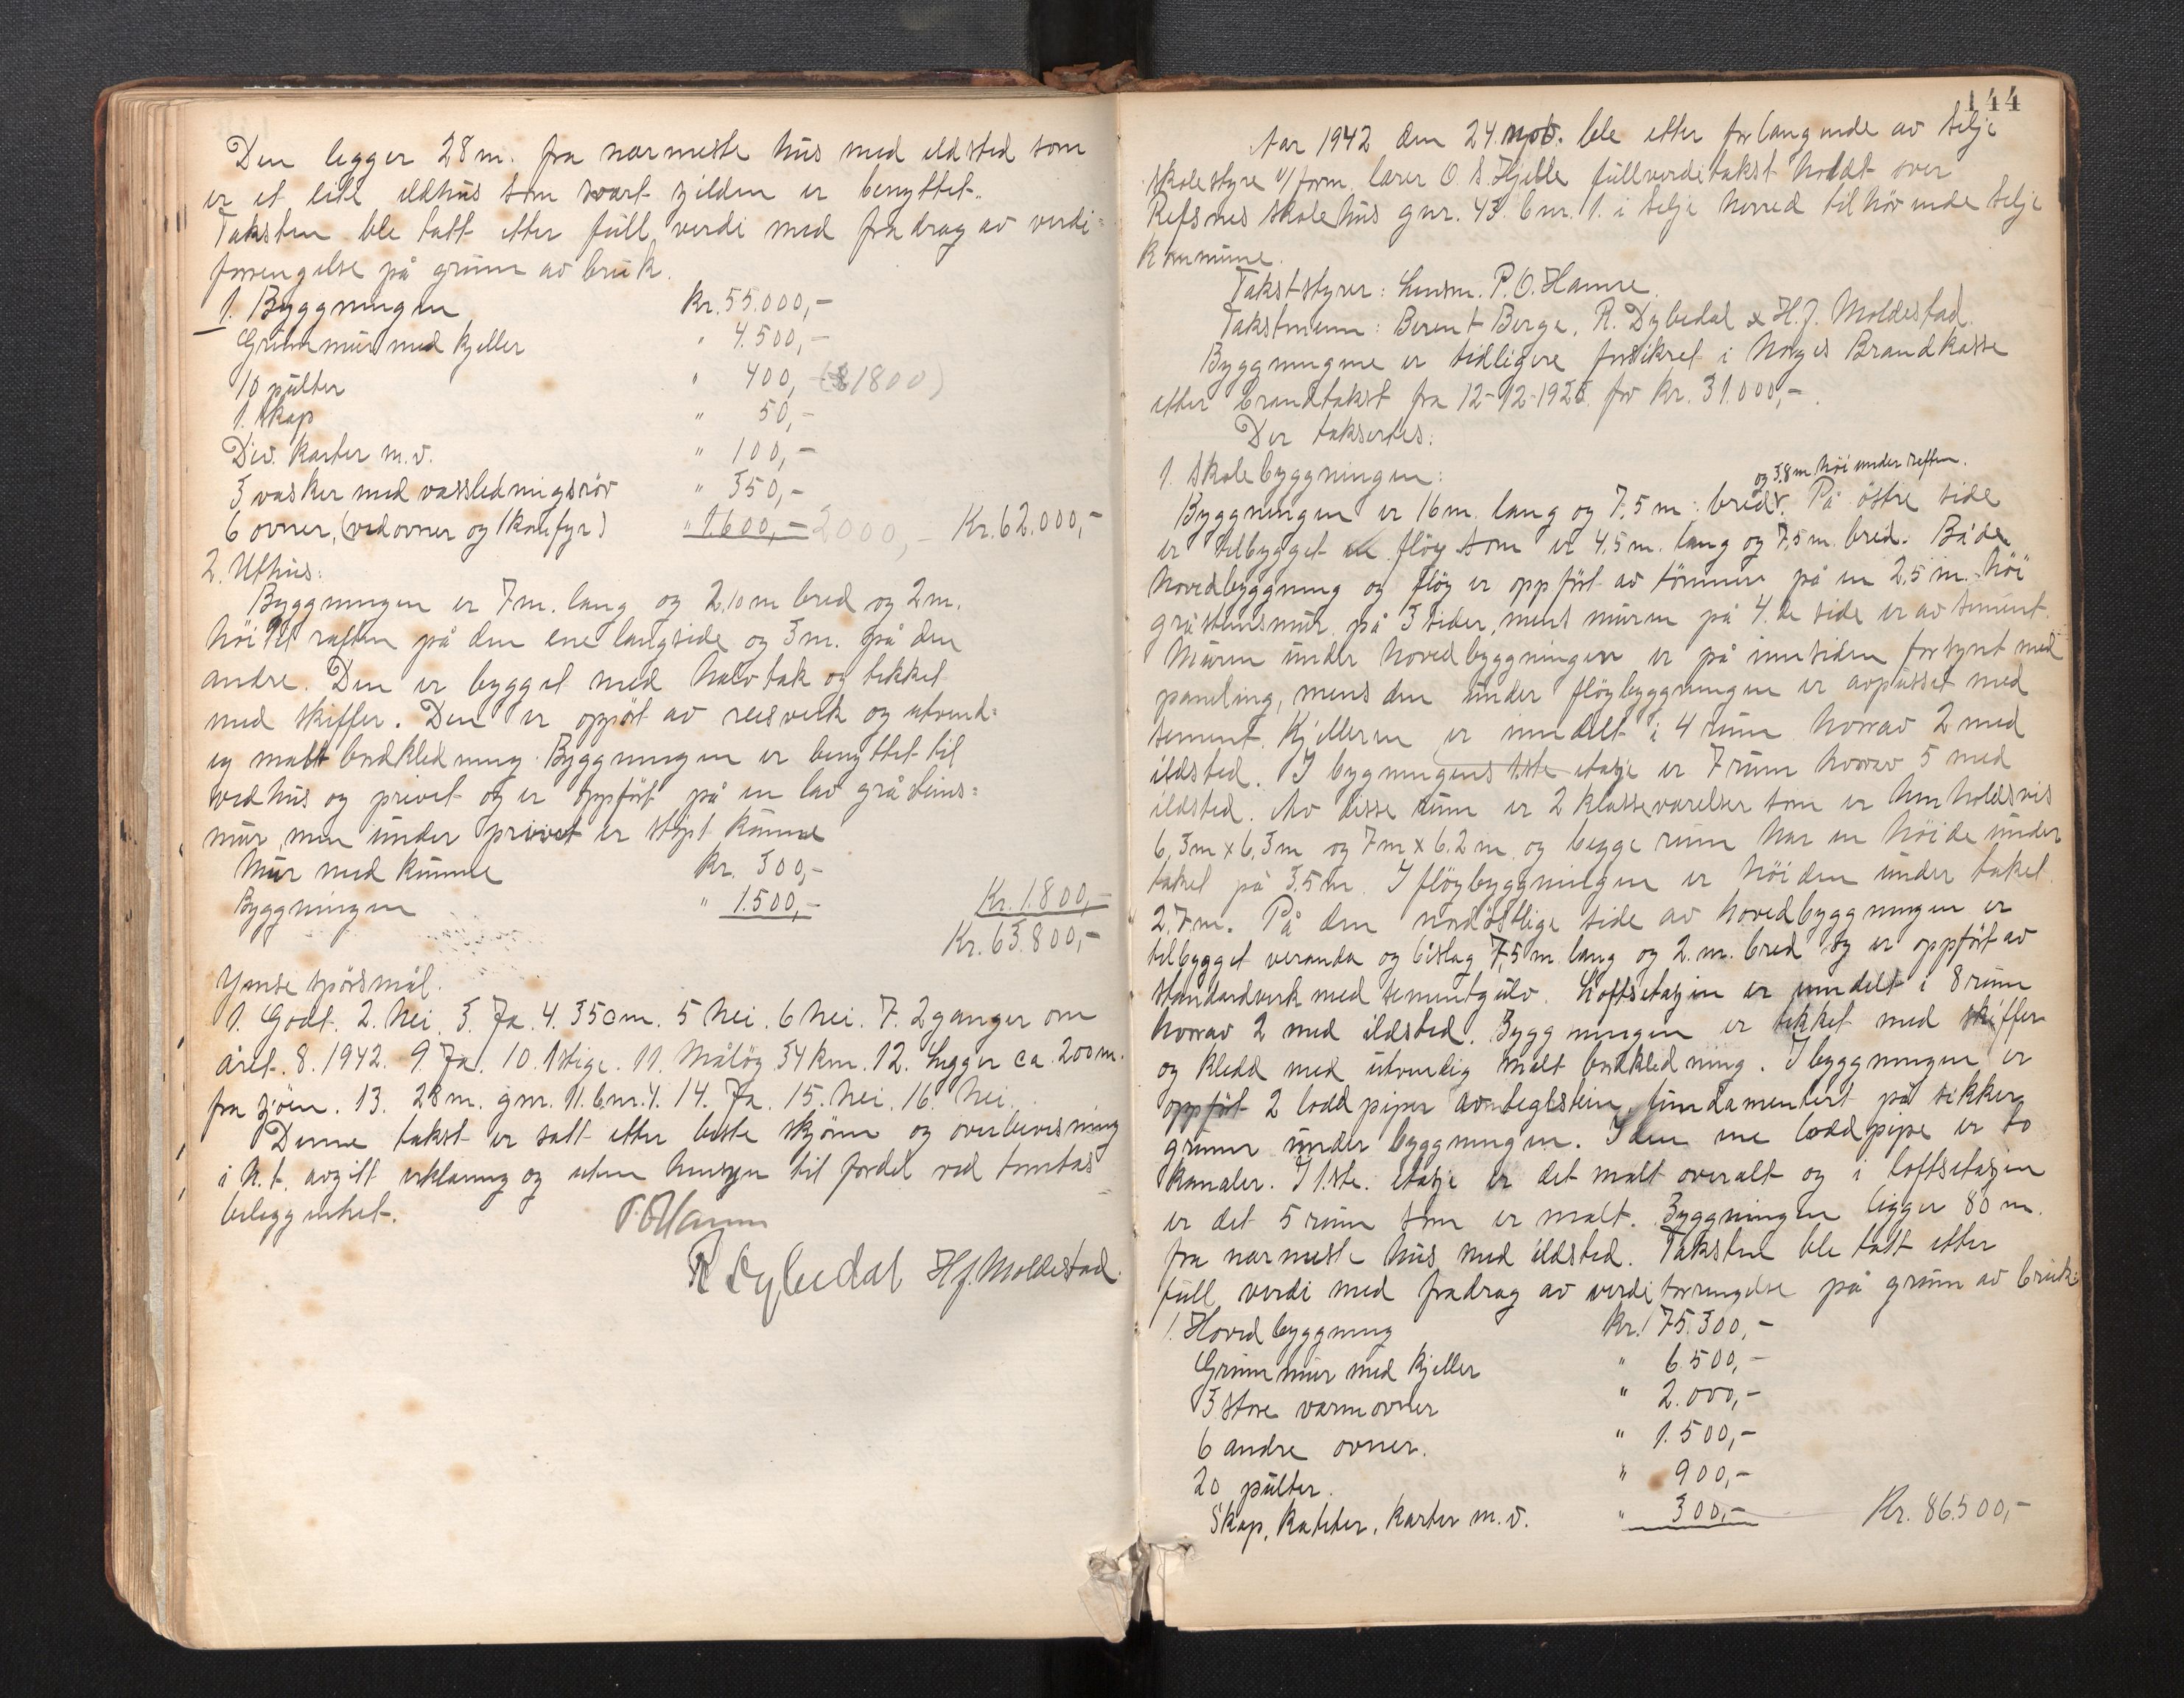 Den legger 28 m. fra nærmeste hus med ildsted som
er et lite eldhus som svært sjelden er benyttet.
Taksten ble tatt etter full verdi med fradrag av verdi=
forrengelse på grunn av bruk.
1. Byggningen Kr. 55.000,-
Grunnmur med kjeller " 4.500,-
10 pulter " 400,- (1800)
1 skap " 50,-
Div. karter m.v. " 100,-
3 vasker med vassledningsrör " 350,-
6 ovner, (vedovner og 1 komfyr) " 1.600,- 2000,- Kr. 62.000,-
2. Uthus:
Byggningen er 7 m. lang og 2,10 m bred og 2 m.
höi til raften på den ene langside og 3 m. på den
andre. Den er bygget med halvtak og tekket
med skiffer. Den er oppört av reisverk og utvend=
ig malt bordkledning. Byggningen er benyttet til
vedhus og privet og er oppfört på en lav gråsteins=
mur, men under privet er stöpt kumme
Mur med kumme Kr. 300,-
Byggningen " 1.500,- Kr. 1.800,-
Kr. 63.800,-
Ymse spörsmål.
1. Godt. 2. Nei. 3. Ja. 4. 35 cm. 5 Nei. 6 Nei. 7. 2 ganger om
året. 8. 1942. 9. Ja. 10. 1 stige. 11. Målöy 34 km. 12. Legger ca. 200 m.
fra sjöen. 13. 28 m. gnr. 11. bnr. 1. 14. Ja. 15. Nei. 16. Nei.
Denne takst er satt etter beste skjönn og overbevisning
i h.t. avgitt erklæring og uten hensyn til fordel ved tomtas
beleggenhet.
P. O. Hamre
R Dybedal H J. Moldestad.
144
Aar 1942 den 24. nov. ble etter forlangende av Selje
skolestyre v/ form. lærer O. S. Hjelle fullverditakst holdt over
Refsnes skolehus gnr. 43. bnr. 1. i Selje herred tilhörende Selje
kommune.
Takststyrer: Lensm. P. O. Hamre.
Takstmenn: Berent Berge, R. Dybedal & H. J. Moldestad.
Byggningene er tidligere forsikret i Norges Brandkasse
etter brandtakst fra 12-12-1925. for kr. 31.000,-.
Der takseres:
1. Skolebyggningen:
og 3,8 m höi under reften.
Byggningen er 16 m. lang og 7,5 m. bred. På östre side
er tilbygget en flöy som er 4,5 m. lang og 7,5 m. bred. Både
hovedbyggning og flöy er oppfört av tömmer på en 2,5 m. höi
gråsteinsmur på 3 sider, mens muren på 4. de side er av sement.
Muren under hovedbyggningen er på innsiden forsynt med
paneling, mens den under flöybyggningen er avpusset med
sement. Kjelleren er inndelt i 4 rum horav 2 med
ildsted. I bygningens 1ste etasje er 7 rum horav 5 med
ildsted. Av disse rum er 2 klasseværelser som er henholdsvis
6,3 m x 6,3 m og 7 m x 6,2 m. og begge rum har en höide under
taket på 3,5 m. I flöybyggningen er höiden under taket
2,7 m. På den nordöstlige side av hovedbyggningen er
tilbygget veranda og bislag 7,5 m lang og 2 m. bred og er oppfört av
standardverk med sementgulv. Loftsetasjen er inndelt i 8 rum
horav 2 med ildsted. Byggningen er tekket med skiffer
og kledd med utvendig malt bordkledning. I byggningen er
oppfört 2 loddpiper av teglstein, fundamentert på sikker
grunn under byggningen. I den ene loddpipe er to
kanaler. I 1ste. etasje er det malt overalt og i loftsetasjen
er det 5 rum som er malt. Byggningen ligger 80 m.
fra nærmeste hus med ildsted. Taksten ble tatt etter
full verdi med fradrag av verdiforrengelse på grunn av bruk:
1. Hovedbyggning Kr. 75.300,-
Grunnmur med kjeller " 6.500,-
3 store varmovner " 2.000,-
6 andre ovner. " 1.500,-
20 pulter. " 900,-
Skap, kateter, karter m.v. " 300,- Kr. 86500,-